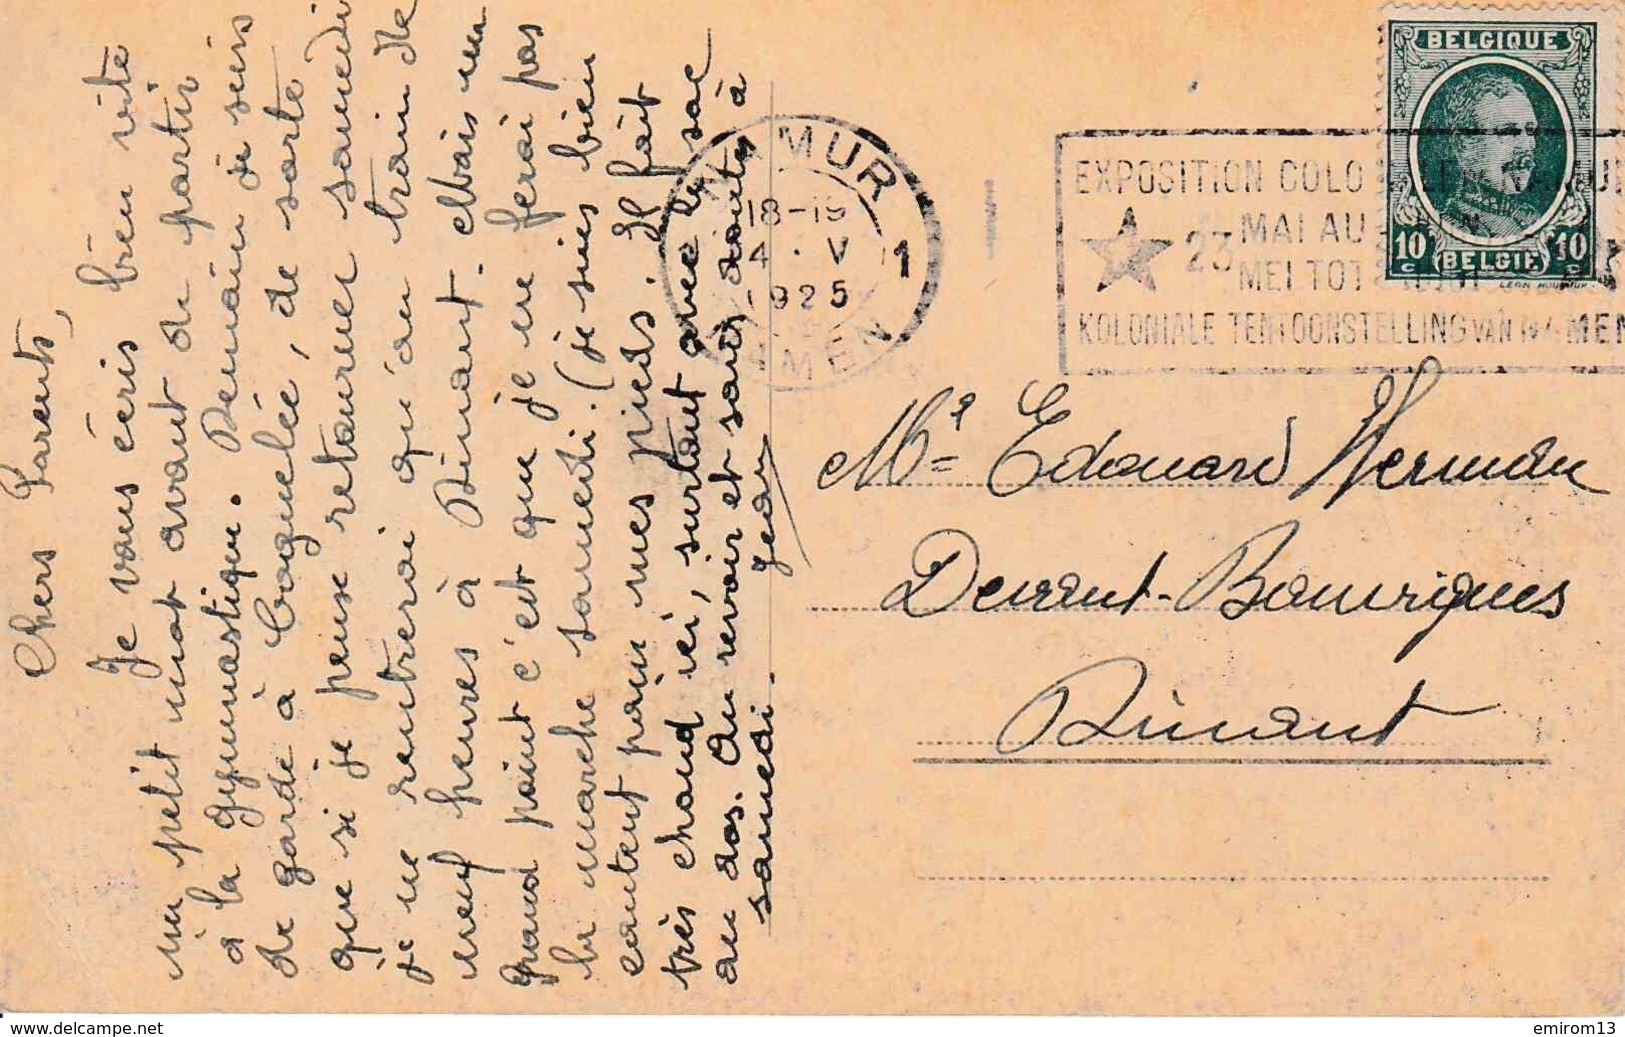 Chers Parents,
Je vous écris bien vite
un petit mot avant de partir
à la gymnastique. Demain je suis
de garde à Cognelée, de sorte
que si je pense retourner samedi
je ne rentrerai qu'au train de
neuf heures à Dinant. Mais un
grand point c'est que je ne ferai pas
la marche samedi. (je suis bien
content pour mes pieds. Il fait
très chaud ici, surtout avec le sac
au dos. Au revoir et sans doute à
samedi.
Jean
NAMUR
18-19
4 · V
1925
1
NAMEN
EXPOSITION COLO
23 MAI AU
MEI TOT
KOLONIALE TENTOONSTELLING VAN NAMEN
BELGIQUE
10 c
10 c
BELGIË
Mr Edouard Herman
Devant-Bouvignes
Dinant
www.delcampe.net
emirom13